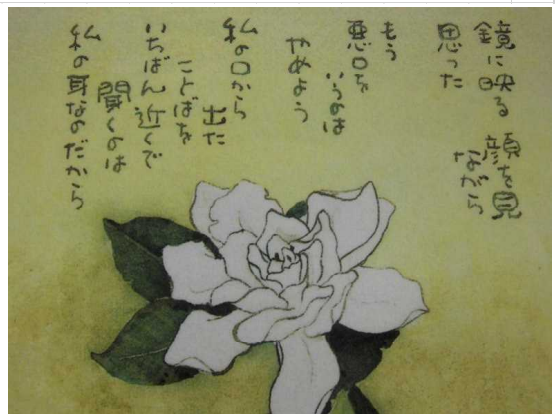 鏡に映る 顔を見
ながら
思った
もう
悪口を
いうのは
やめよう
私の口から 出た
ことばを
いちばん近くで
聞くのは
私の耳なのだから